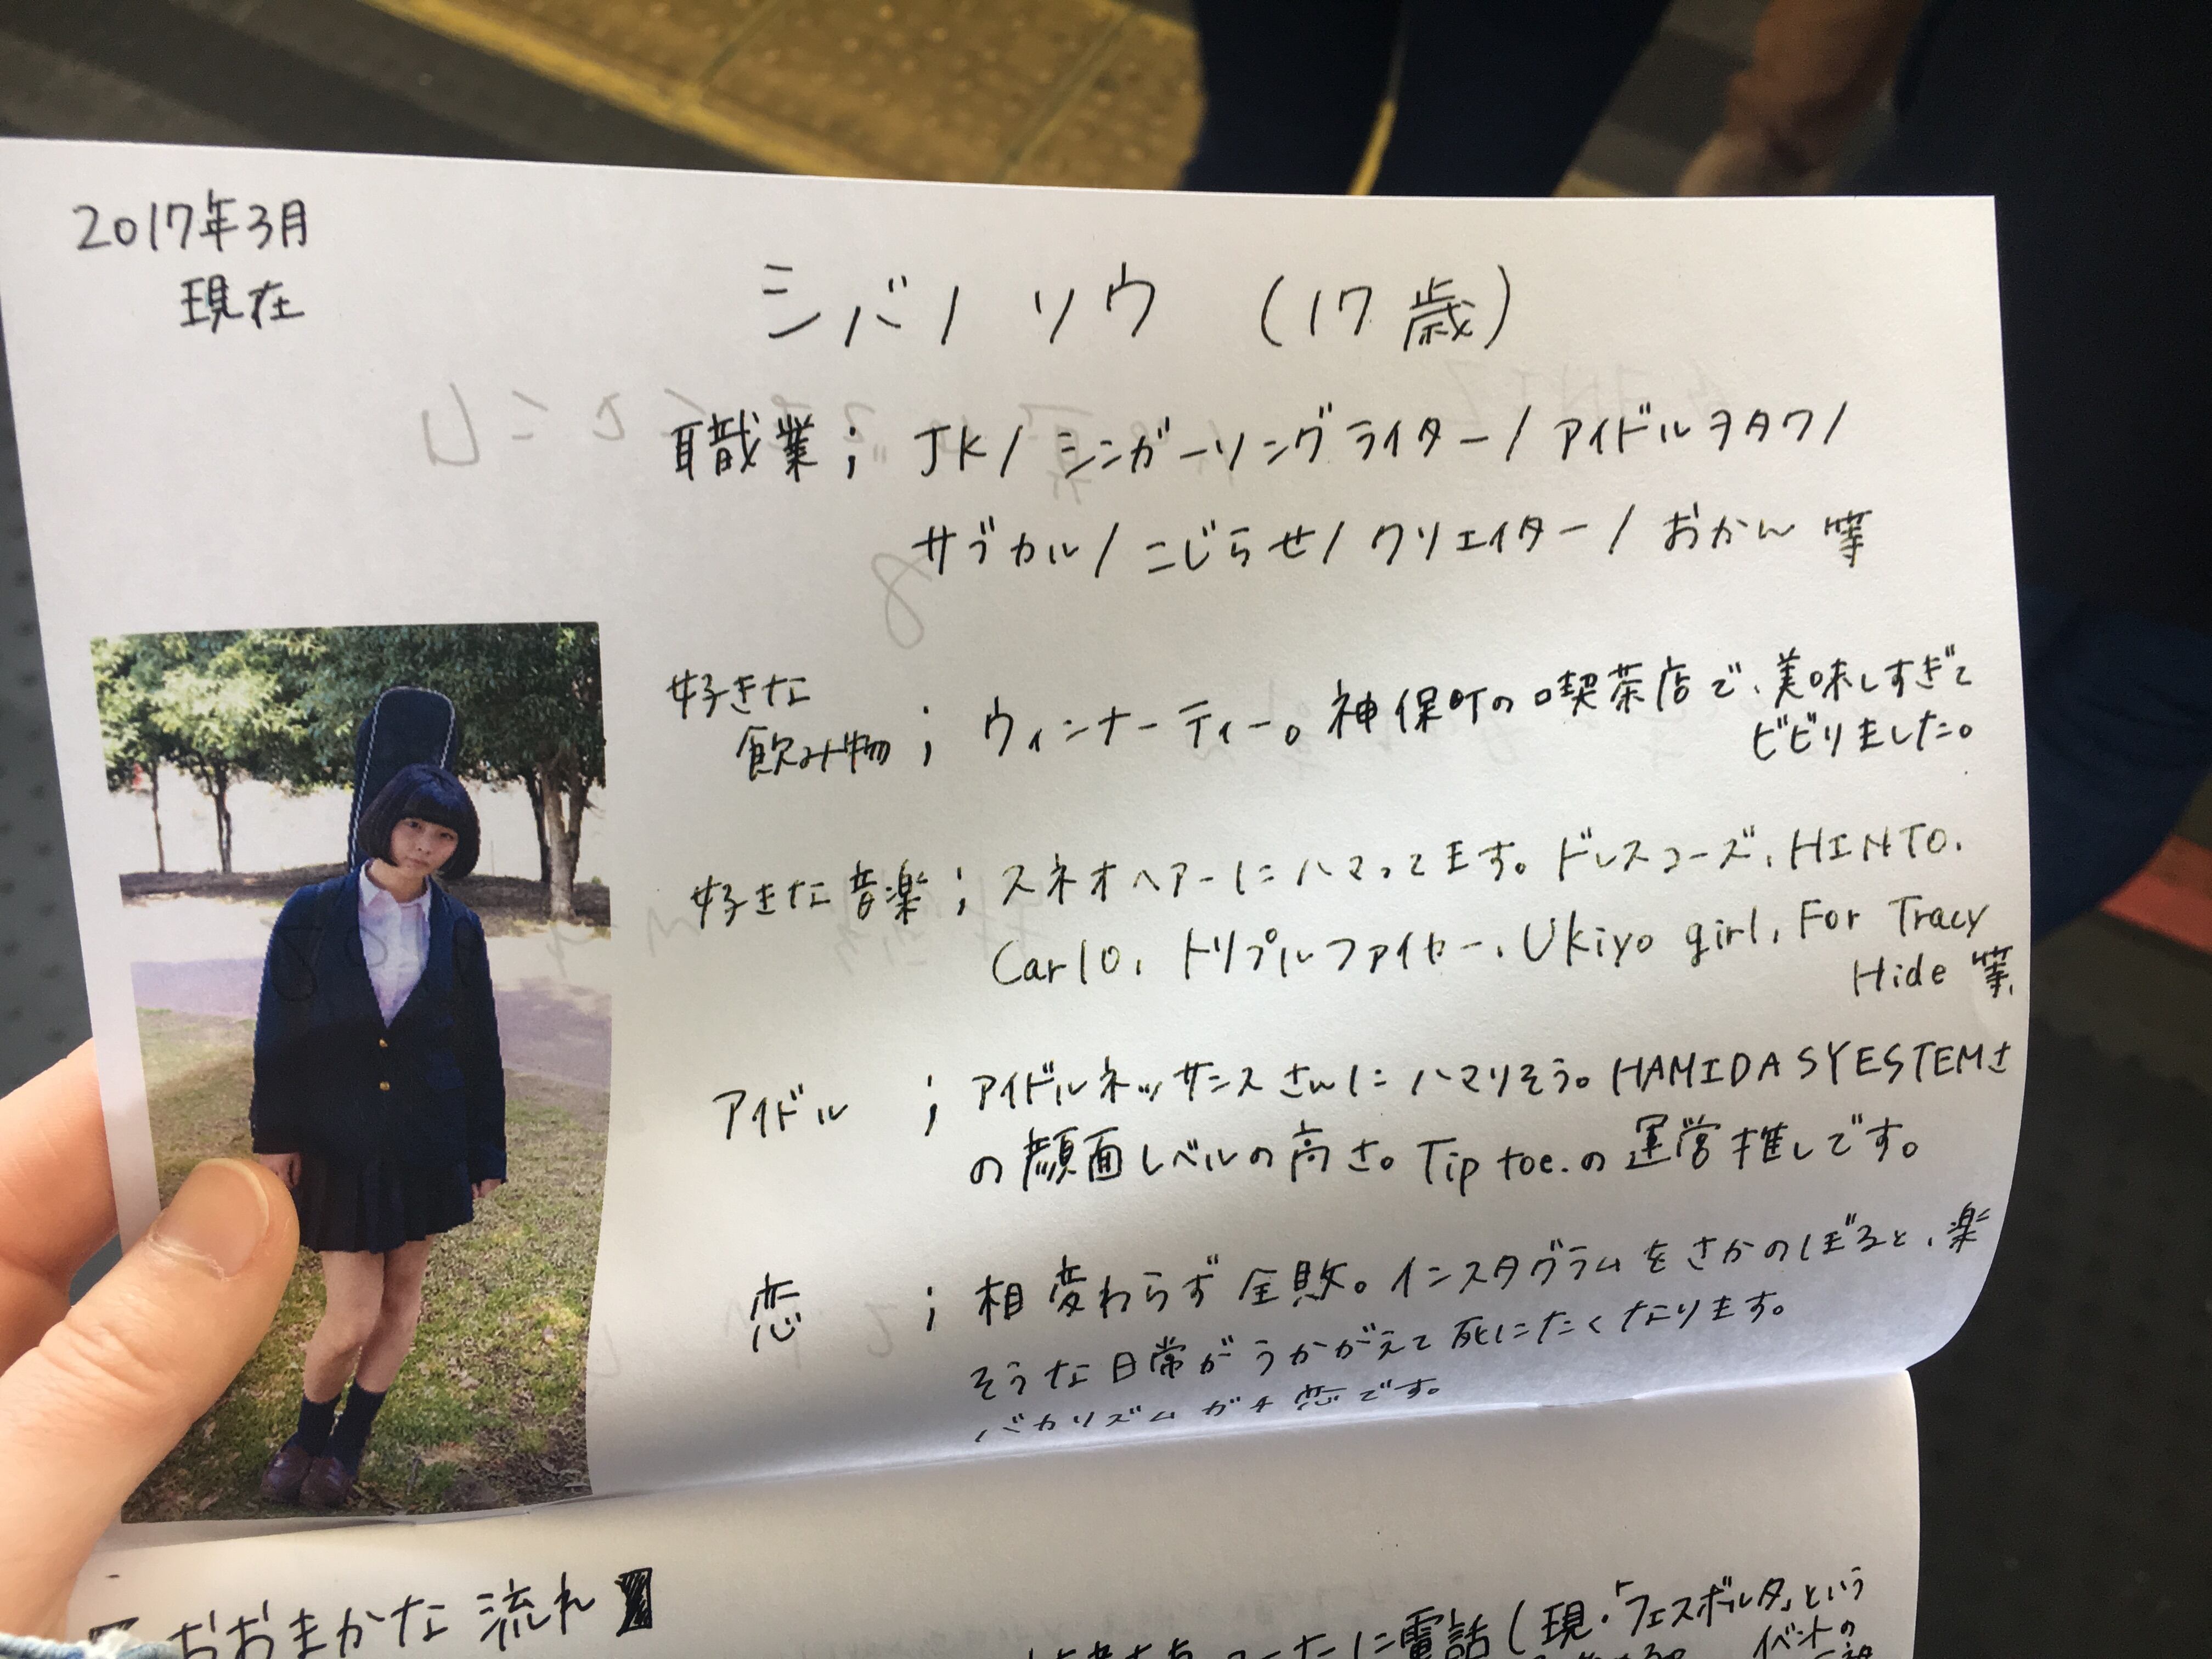 2017年3月
現在
シバノソウ (17歳)
職業; JK/シンガーソングライター/アイドルヲタク/
サブカル/こじらせ/クリエイター/おかん 等
好きな
飲み物; ウィンナーティー。神保町の喫茶店で、美味しすぎて
ビビりました。
好きな音楽; スネオヘアーにハマってます。ドレスコーズ、HINTO、
Carlo、トリプルファイヤー、Ukiyo girl、For Tracy
Hide 等、
アイドル ; アイドルネッサンスさんにハマりそう。HAMIDASYESTEMさ
の顔面レベルの高さ。Tip toe.の運営推しです。
恋 ; 相変わらず全敗。インスタグラムをさかのぼると、楽
そうな日常がうかがえて死にたくなります。
バカリズムガチ恋です。
おおまかな流れ】
に電話(現・「フェスボルタ」という
イベントの